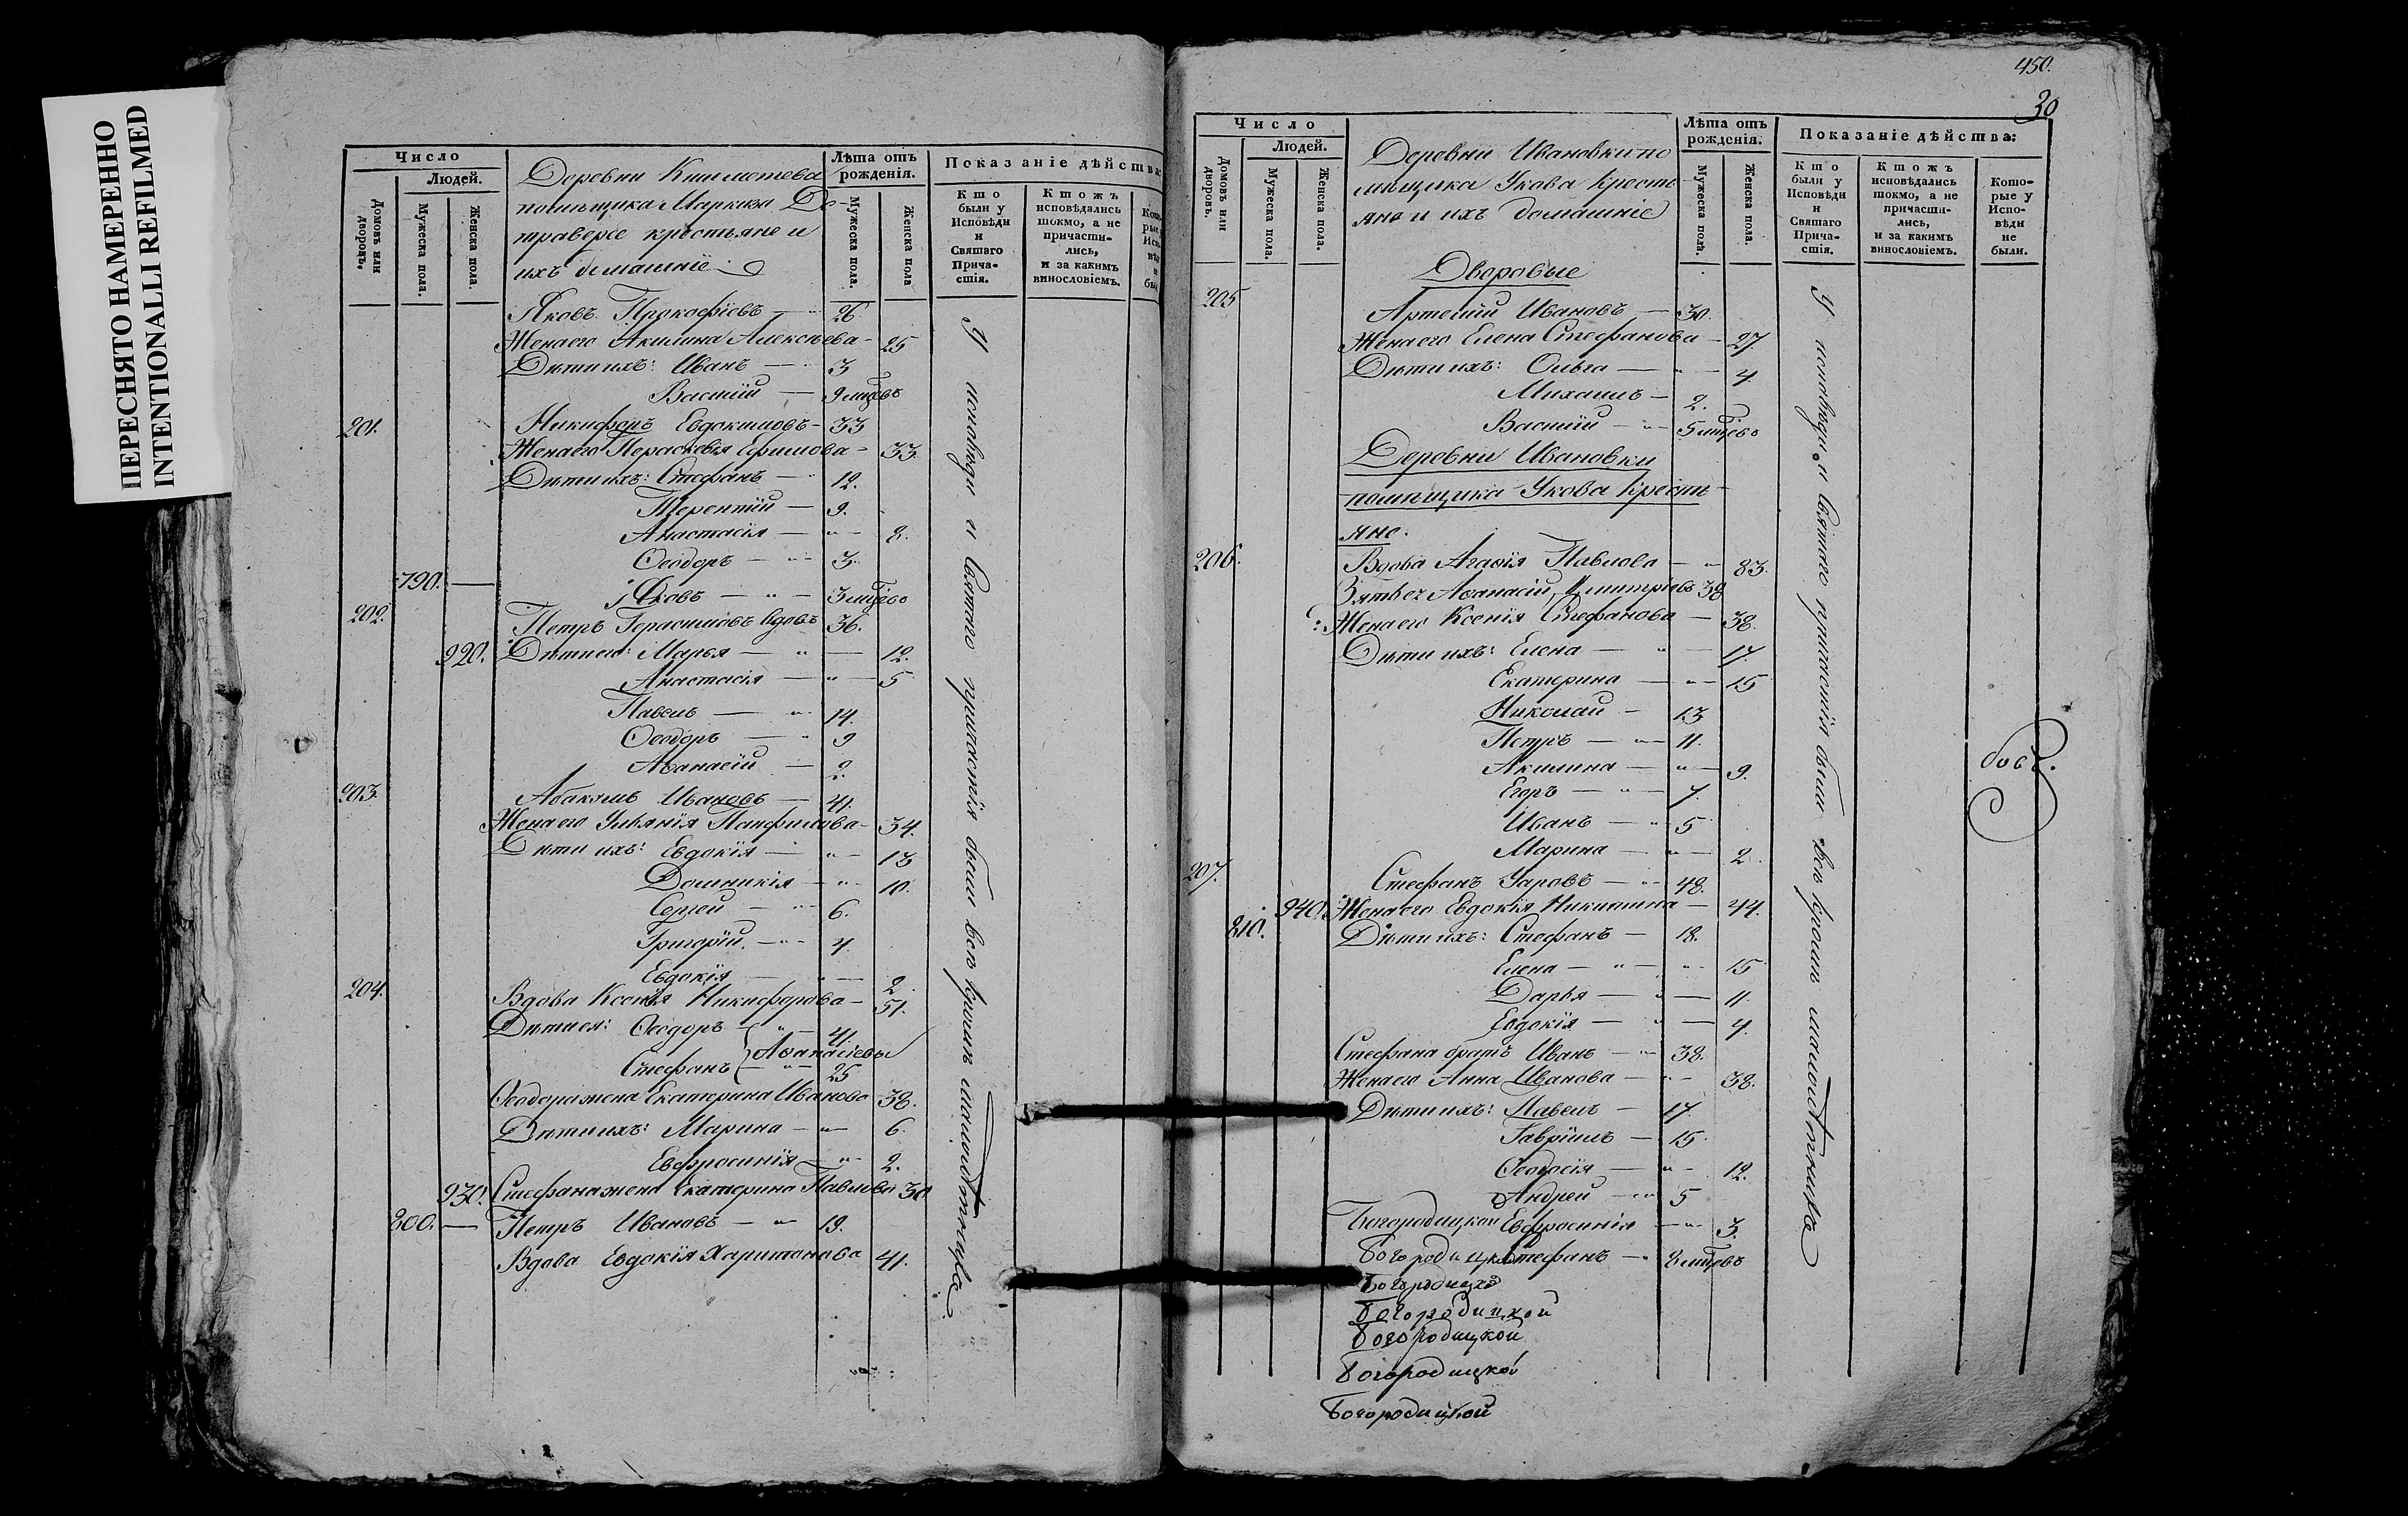 ПЕРЕСНЯТО НАМЕРЕННО
INTENTIONALLI REFILMED
Число
Людей.
Домовъ или дворовъ.
Мужеска пола.
Женска пола.
помѣщика Маркиза Де
траверсе крестьяне и
ихъ домашніе
Лѣта отъ рожденія.
Мужеска пола.
Женска пола
Показаніе дѣйства
Кто были у Исповѣди и Святаго Причастія.
Ктожъ исповѣдались токмо, а не причастились, и за какимъ винословіемъ.
Яковъ Прокофіевъ — 26.
Жена его Акилина Алексѣева — 25
Дѣти ихъ: Иванъ — 3
Василій — 9 мцевъ
201. Никифоръ Евдокимовъ — 33
Жена его Параскевія Ефимова — 33
Дѣти ихъ: Стефанъ — 12.
Терентій — 9.
Анастасія — 8.
Ѳеодоръ — 3.
790. — Яковъ — 3 мцевъ
202. Петръ Герасимовъ вдовъ 36.
920. Дѣти его: Марья — 12.
Анастасія — 5
Павелъ — 14.
Ѳеодоръ — 9
Аѳанасій — 2.
203. Абакумъ Ивановъ — 41.
Жена его Ульянія Панфилова — 34.
Дѣти ихъ: Евдокія — 13
Домникія — 10.
Сергей — 6.
Григорій — 4.
Евдокія — 2.
204. Вдова Ксенія Никифорова — 51.
Дѣти ея: Ѳеодоръ — 41
Аѳанасіевы
Стефанъ — 25
Ѳеодора жена Екатерина Иванова 38.
Дѣти ихъ: Марина — 6.
Евфросинія — 2.
930. Стефана жена Екатерина Павлова 30
800. — Петръ Ивановъ — 19.
Вдова Евдокія Харитонова 41.
У исповѣди и святаго причастія были всѣ кромѣ малолѣтнихъ
450.
30
Число
Людей.
Домовъ или дворовъ.
Мужеска пола.
Женска пола.
Деревни Ивановки по
мѣщика Укова кресть
яне и ихъ домашніе
Лѣта отъ рожденія.
Мужеска пола.
Женска пола.
Показаніе дѣйства:
Кто были у Исповѣди и Святаго Причастія.
Ктожъ исповѣдались токмо, а не причастились, и за какимъ винословіемъ.
Которые у Исповѣди не были.
Дворовые
205 Артемій Ивановъ — 30.
Жена его Елена Стефанова — 27.
Дѣти ихъ: Ольга — 4.
Михаилъ — 2.
Василій — 5 мцевъ
Деревни Ивановки
помѣщика Укова кресть
яне.
206. Вдова Агафія Павлова — 83.
Зять ея Аѳанасій Дмитріевъ 38
Жена его Ксенія Стефанова — 38.
Дѣти ихъ: Елена — 17.
Екатерина — 15
Николай — 13
Петръ — 11.
Акилина — 9.
Егоръ — 7.
Иванъ — 5
Марина — 2.
207. Стефанъ Уаровъ — 48.
940. Жена его Евдокія Никитина — 44.
810. Дѣти ихъ: Стефанъ — 18.
Елена — 15
Дарья — 11.
Евдокія — 4.
Стефана братъ Иванъ — 38.
Жена его Анна Иванова — 38.
Дѣти ихъ: Павелъ — 17.
Гавріилъ — 15.
Ѳеодосія — 12.
Андрей — 5
Богородицкой Евфросинія — 3.
Стефанъ — 8 мцевъ
Богородицкой
Богородицкой
Богородицкой
Богородицкой
У исповѣди и святаго причастія были всѣ кромѣ малолѣтнихъ